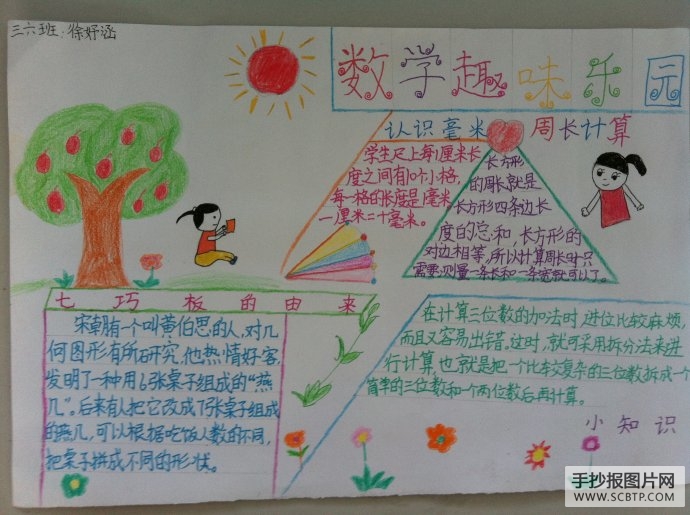 三六班:徐妤涵
数学趣味乐园
认识毫米
学生尺上每1厘米长
度之间有10个小格,
每一格的长度是1毫米
一厘米=十毫米。
周长计算
长方形
的周长就是
长方形四条边长
度的总和,长方形的
对边相等,所以计算周长时只
需要测量一条长和一条宽就可以了。
七巧板的由来
宋朝有一个叫黄伯思的人,对几
何图形有所研究,他热情好客,
发明了一种用6张桌子组成的“燕
几”。后来有人把它改成7张桌子组成
的燕几,可以根据吃饭人数的不同,
把桌子拼成不同的形状。
在计算三位数的加法时,进位比较麻烦,
而且又容易出错。这时,就可采用拆分法来进
行计算,也就是把一个比较复杂的三位数拆成一个
简单的三位数和一个两位数后再计算。
小知识
手抄报图片网
WWW.SCBTP.COM